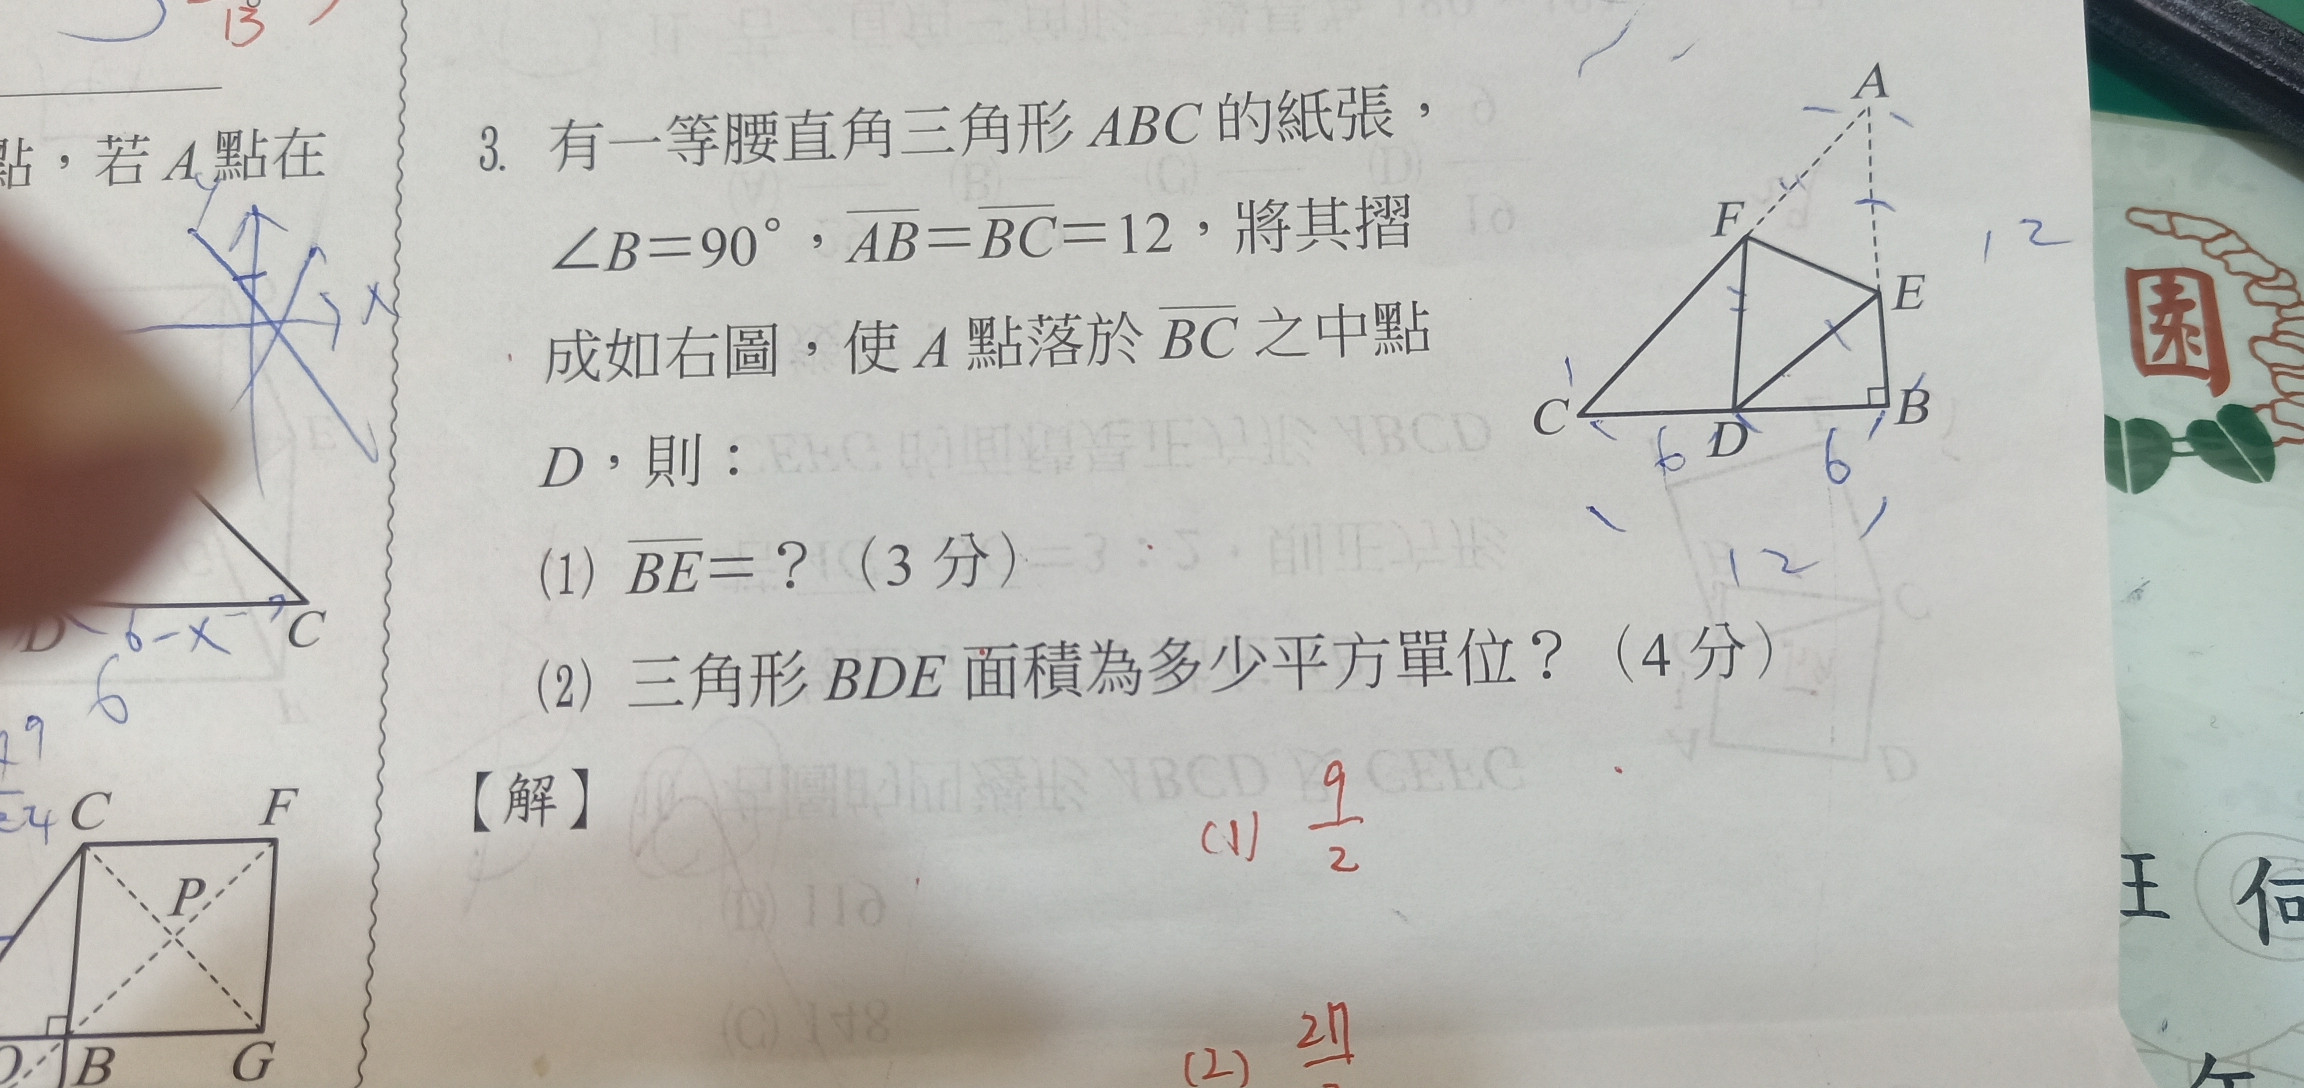 13
點，若 A 點在
y
x
D 6-x C
6
9
4
C F
P
B G
3. 有一等腰直角三角形 ABC 的紙張，
∠B=90°，AB=BC=12，將其摺
成如右圖，使 A 點落於 BC 之中點
D，則：
(1) BE=？（3 分）
(2) 三角形 BDE 面積為多少平方單位？（4 分）
【解】
(1) 9/2
(2) 27
A
F
12
E
C D B
6 6
12
園
王 何